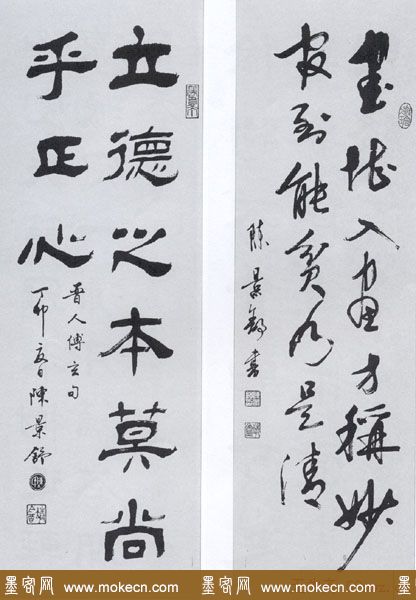 書堪入畫方稱妙
官到能貧乃是清
陳景舒書
立德之本莫尚
乎正心
晉人傅玄句
丁卯夏日陳景舒
墨客网 www.mokecn.com 墨客网 www.mokecn.com 墨客网